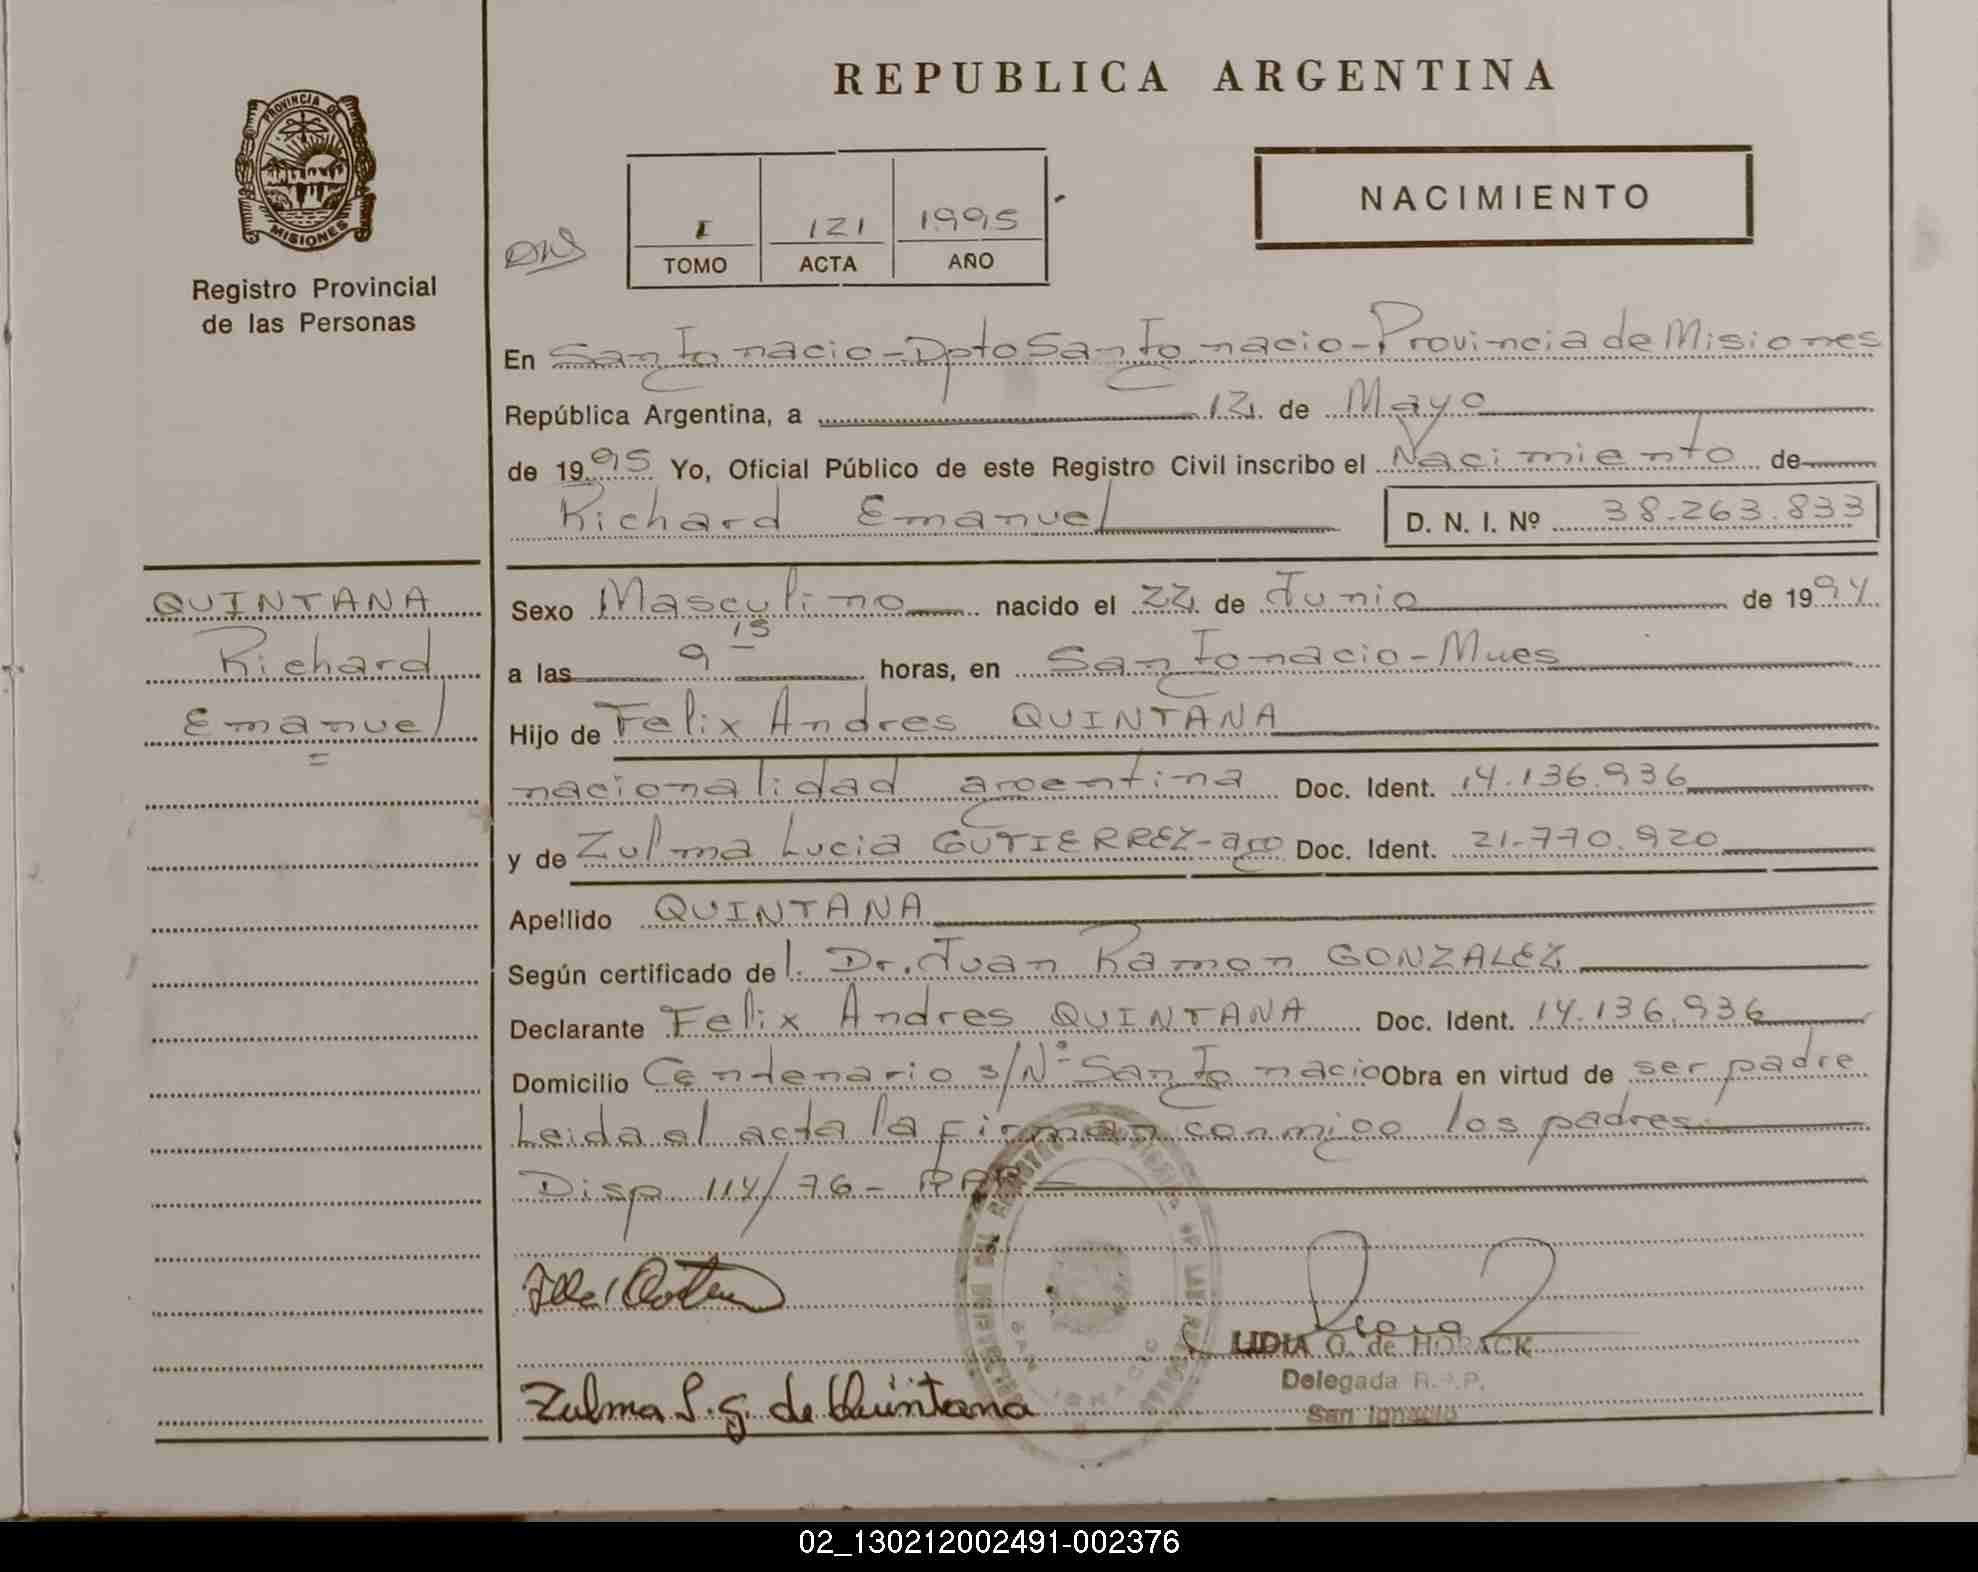 REPUBLICA ARGENTINA
PROVINCIA DE
MISIONES
Registro Provincial
de las Personas
NACIMIENTO
I 121 1995
TOMO ACTA AÑO
En San Ignacio - Dpto San Ignacio - Provincia de Misiones
República Argentina, a 12 de Mayo
de 1995 Yo, Oficial Público de este Registro Civil inscribo el Nacimiento de
Richard Emanuel D. N. I. Nº 38.263.833
QUINTANA
Richard
Emanuel
=
Sexo Masculino nacido el 22 de Junio de 1994
a las 9 15 horas, en San Ignacio - Mnes
Hijo de Felix Andres QUINTANA
nacionalidad argentina Doc. Ident. 14.136.936
y de Zulma Lucia GUTIERREZ - arg Doc. Ident. 21.770.920
Apellido QUINTANA
Según certificado del. Dr. Juan Ramon GONZALEZ
Declarante Felix Andres QUINTANA Doc. Ident. 14.136.936
Domicilio Centenario s/Nº San Ignacio Obra en virtud de ser padre
Leida el acta la firman conmigo los padres.
Disp. 114/76 - RPP -
LIDIA O. de HORACK
Delegada R.P.P.
San Ignacio
Zulma L. G. de Quintana
02_130212002491-002376